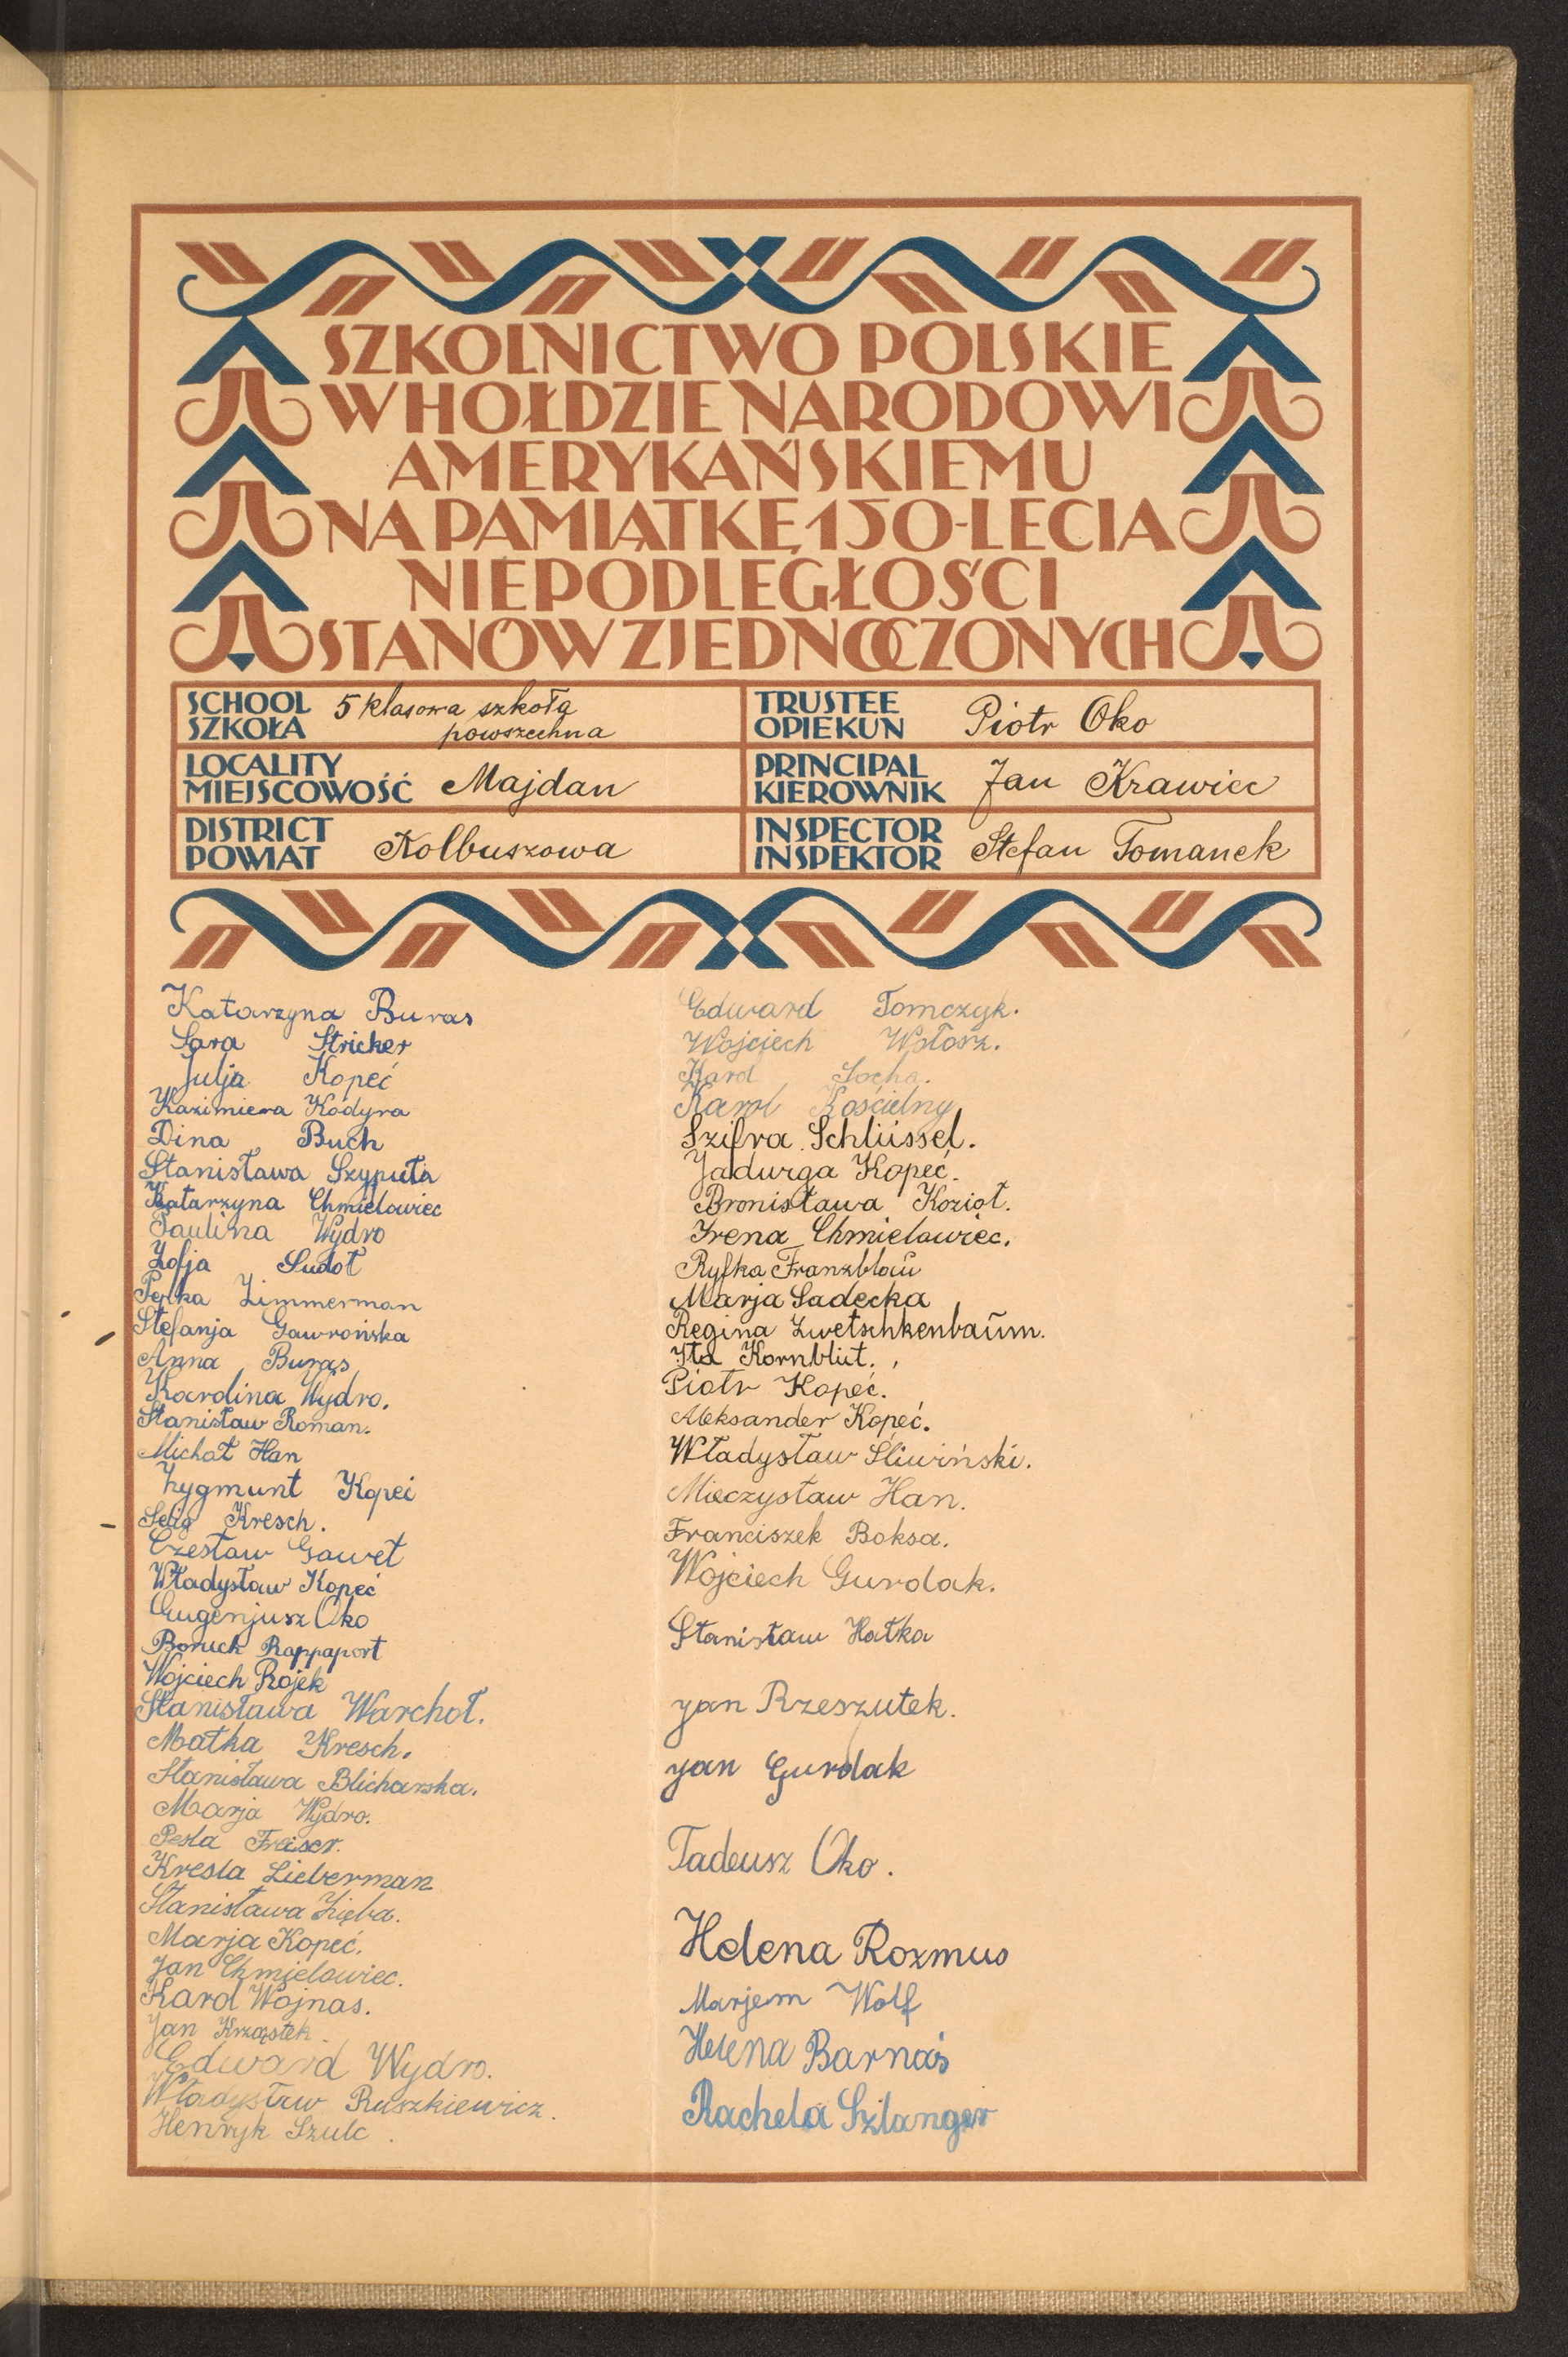 SZKOLNICTWO POLSKIE
W HOŁDZIE NARODOWI
AMERYKAŃSKIEMU
NA PAMIĄTKĘ 150-LECIA
NIEPODLEGŁOŚCI
STANÓW ZJEDNOCZONYCH
SCHOOL
SZKOŁA
5 klasowa szkoła
powszechna
TRUSTEE
OPIEKUN
Piotr Oko
LOCALITY
MIEJSCOWOŚĆ
Majdan
PRINCIPAL
KIEROWNIK
Jan Krawiec
DISTRICT
POWIAT
Kolbuszowa
INSPECTOR
INSPEKTOR
Stefan Tomanek
Katarzyna Buras
Sara Stricker
Julja Kopeć
Kazimiera Kodyra
Dina Buch
Stanisława Szypuła
Katarzyna Chmielowiec
Paulina Wydro
Zofja Sudoł
Perka Zimmerman
Stefanja Gawrońska
Anna Buras
Karolina Wydro.
Stanisław Roman.
Michał Han
Zygmunt Kopeć
Selig Kresch.
Czesław Gaweł
Władysław Kopeć
Eugenjusz Oko
Boruch Rappaport
Wojciech Rojek
Stanisława Warchoł.
Matka Kresch.
Stanisława Blicharska.
Marja Wydro.
Pesla Freiser.
Kresla Lieberman
Stanisława Zięba.
Marja Kopeć.
Jan Chmielowiec.
Karol Wojnas.
Jan Krząstek.
Edward Wydro.
Władysław Ruszkiewicz.
Henryk Szulc.
Edward Tomczyk.
Wojciech Wołosz.
Karol Socha.
Karol Kościelny
Szifra Schlüssel.
Jadwiga Kopeć.
Bronisława Kozioł.
Irena Chmielowiec.
Ryfka Franzblau
Marja Sadecka
Regina Zwetschkenbaum.
Ita Kornblüt.
Piotr Kopeć.
Aleksander Kopeć.
Władysław Śliwiński.
Mieczysław Han.
Franciszek Boksa.
Wojciech Gurdak.
Stanisław Hałka
Jan Rzeszutek.
Jan Gurdak
Tadeusz Oko.
Helena Rozmus
Marjem Wolf
Helena Barnaś
Rachela Szlanger